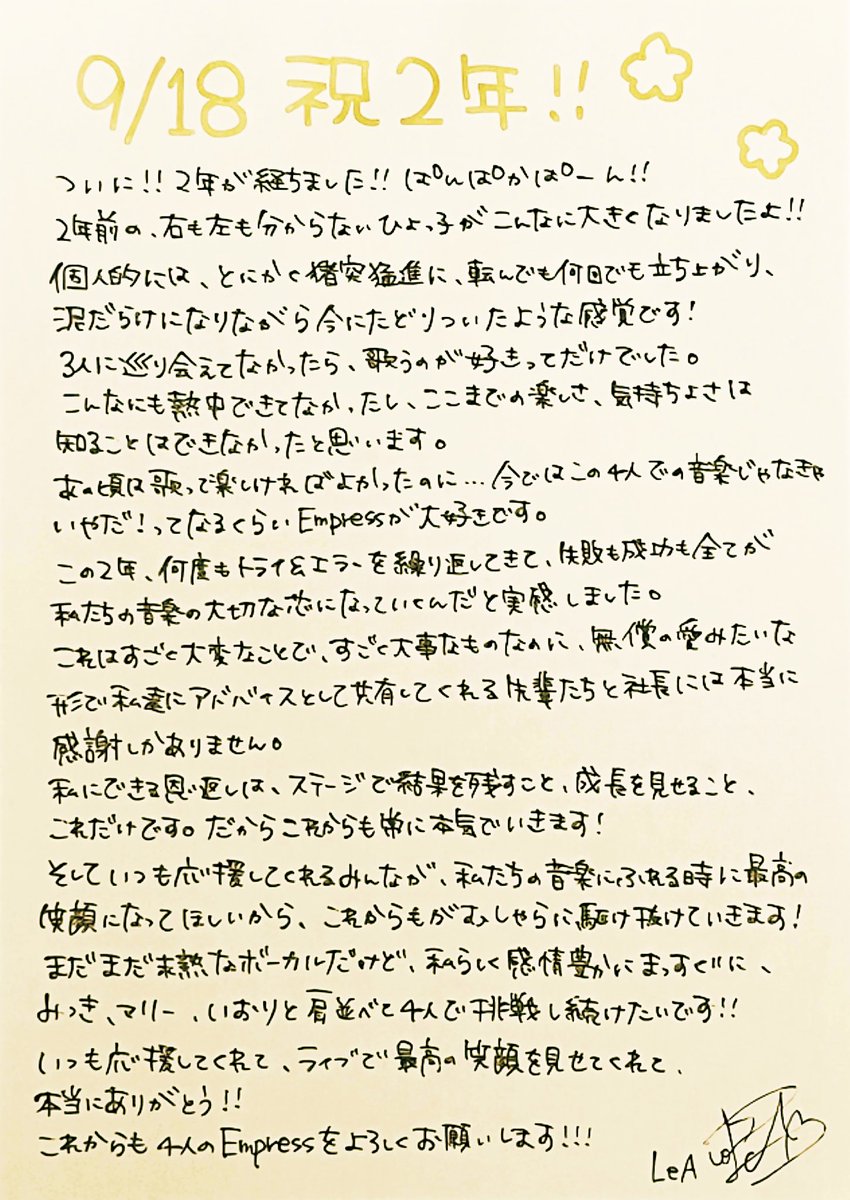 9/18 祝2年!!
ついに!! 2年が経ちました!! ぱんぱかぱーん!!
2年前の、右も左も分からないひよっ子がこんなに大きくなりましたよ!!
個人的には、とにかく猪突猛進に、転んでも何回でも立ち上がり、
泥だらけになりながら今にたどりついたような感覚です!
3人に巡り会えてなかったら、歌うのが好きってだけでした。
こんなにも熱中できてなかったし、ここまでの楽しさ、気持ちよさは
知ることはできなかったと思います。
あの頃は歌って楽しければよかったのに…今ではこの4人での音楽じゃなきゃ
いやだ!ってなるくらいEmpressが大好きです。
この2年、何度もトライ&エラーを繰り返してきて、失敗も成功も全てが
私たちの音楽の大切な芯になっていくんだと実感しました。
これはすごく大変なことで、すごく大事なものなのに、無償の愛みたいな
形で私達にアドバイスとして共有してくれる先輩たちと社長には本当に
感謝しかありません。
私にできる恩返しは、ステージで結果を残すこと、成長を見せること、
これだけです。だからこれからも常に本気でいきます!
そしていつも応援してくれるみんなが、私たちの音楽にふれる時に最高の
笑顔になってほしいから、これからもがむしゃらに駆け抜けていきます!
まだまだ未熟なボーカルだけど、私らしく感情豊かにまっすぐに、
みつき、マリー、いおりと肩並べと4人で挑戦し続けたいです!!
いつも応援してくれて、ライブで最高の笑顔を見せてくれて、
本当にありがとう!!
これからも4人のEmpressをよろしくお願いします!!!
LeA